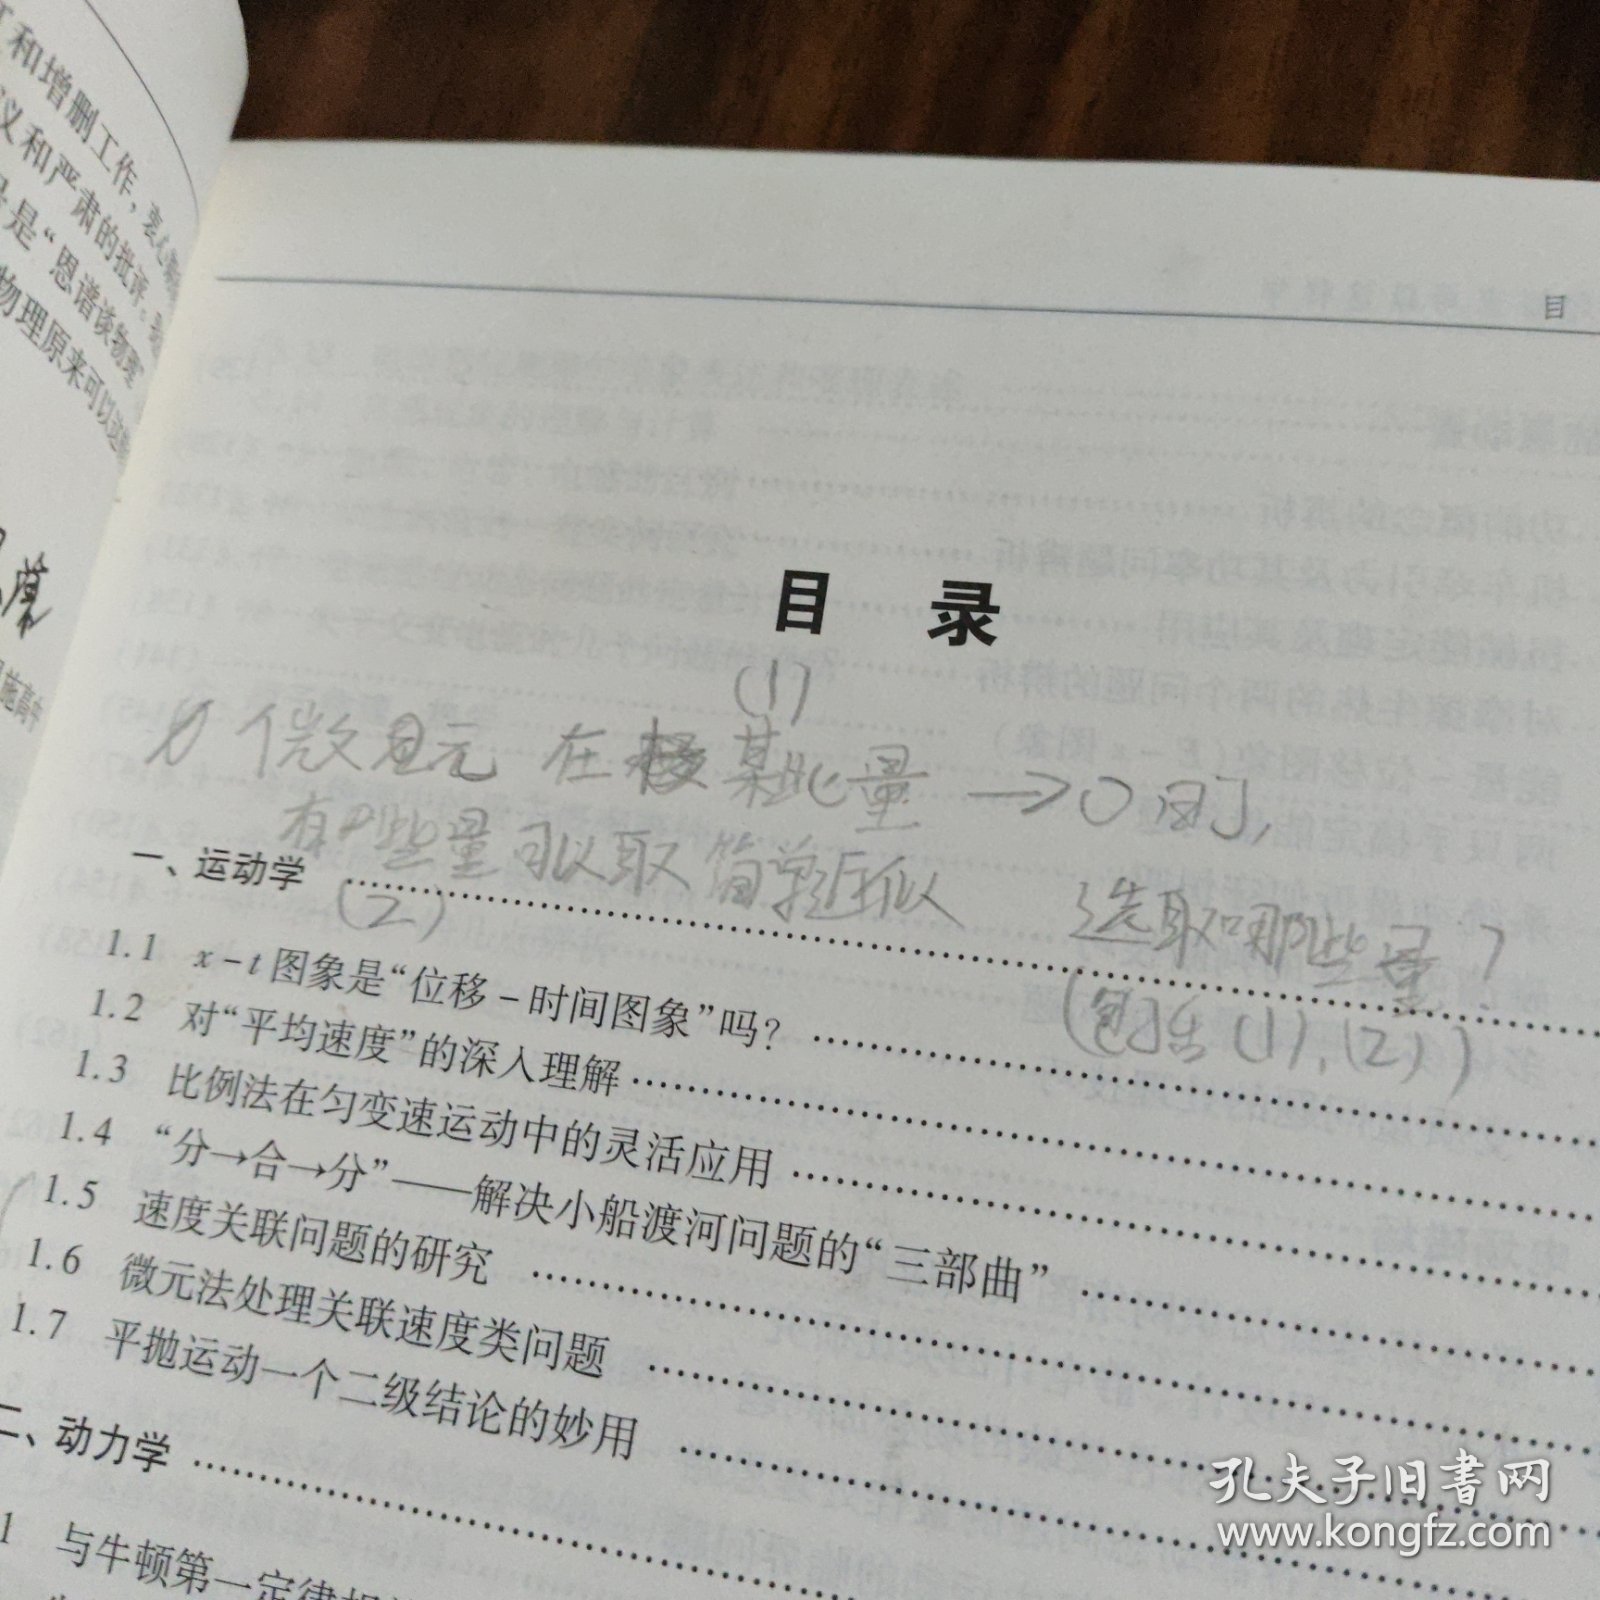 和增删工作，衷心
义和严肃的批评。
是“恩谱谈物理”
物理原来可以这
目
目 录
(1)
微元 在某些量→0时,
有哪些量可以取简单近似
一、运动学
(2)
选取哪些量?
(包括(1),(2))
1.1 x-t图象是“位移-时间图象”吗?
1.2 对“平均速度”的深入理解
1.3 比例法在匀变速运动中的灵活应用
1.4 “分→合→分”——解决小船渡河问题的“三部曲”
1.5 速度关联问题的研究
1.6 微元法处理关联速度类问题
1.7 平抛运动一个二级结论的妙用
二、动力学
1 与牛顿第一定律
孔夫子旧书网
www.kongfz.com